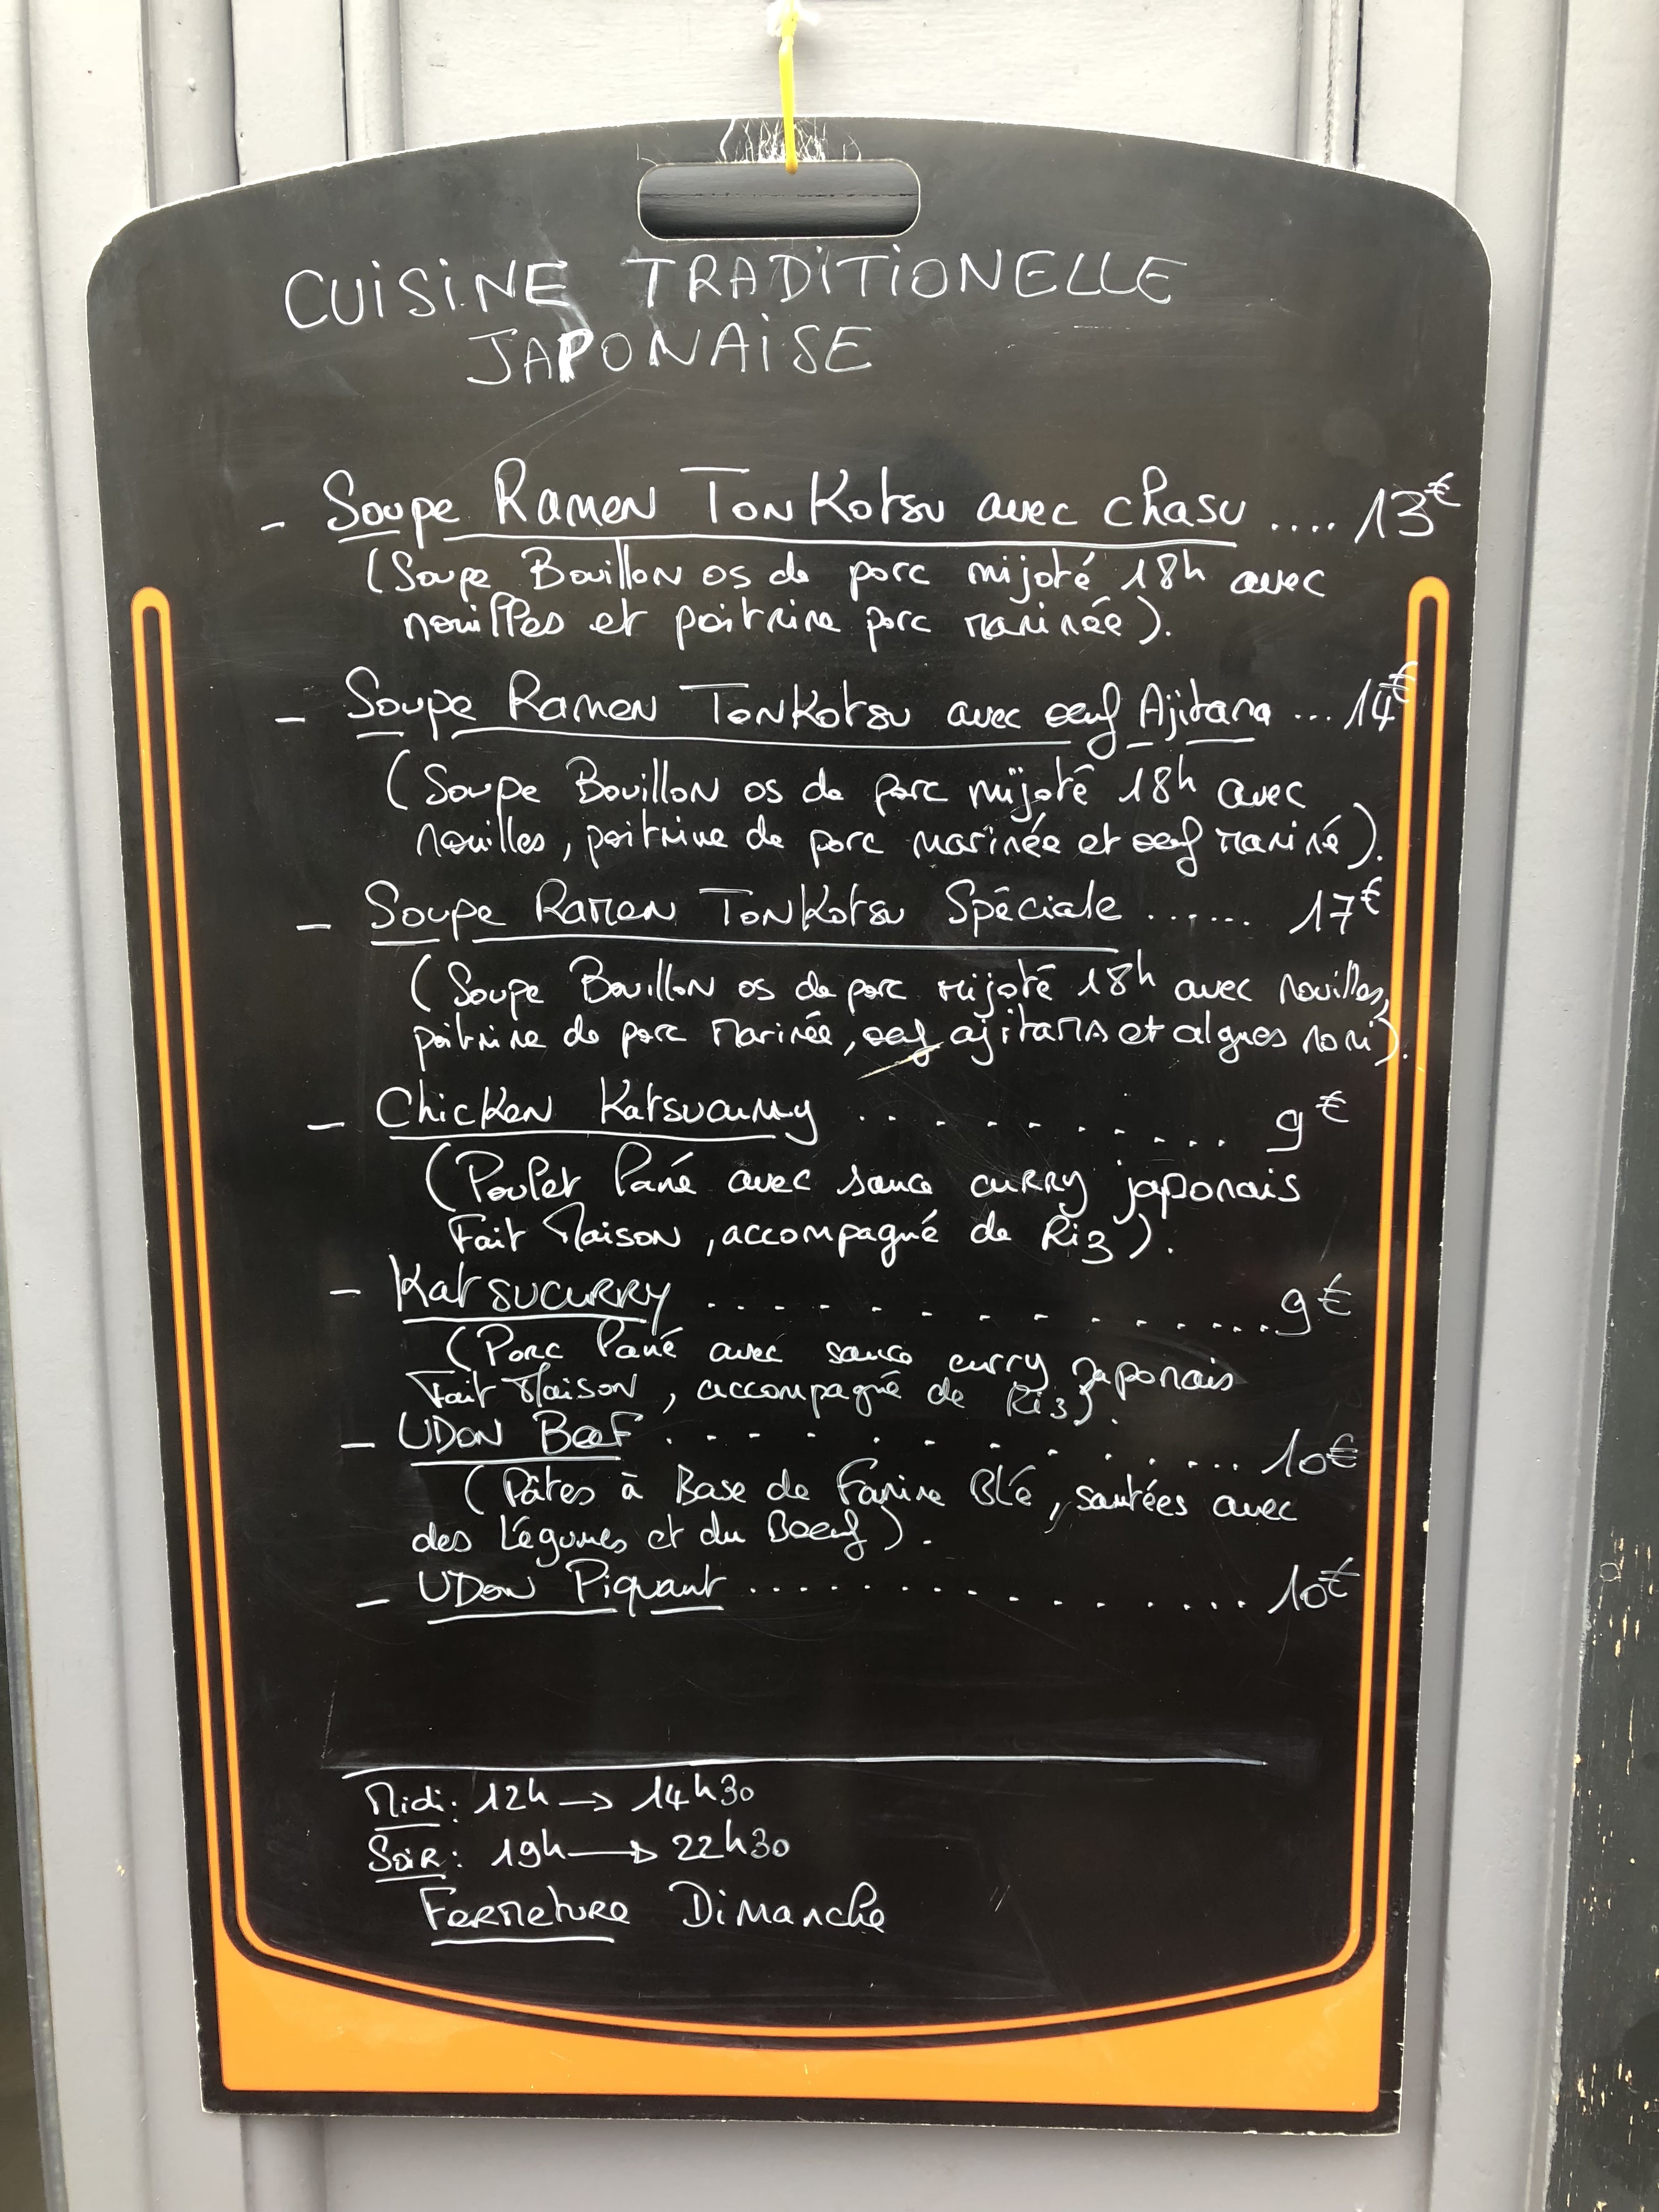 CUISINE TRADITIONELLE
JAPONAISE
- Soupe Ramen TonKotsu avec chasu .... 13€
(Soupe Bouillon os de porc mijoté 18h avec
nouilles et poitrine porc marinée).
- Soupe Ramen TonKotsu avec oeuf Ajitama ... 14€
(Soupe Bouillon os de porc mijoté 18h avec
nouilles, poitrine de porc marinée et oeuf mariné).
- Soupe Ramen TonKotsu Spéciale ...... 17€
(Soupe Bouillon os de porc mijoté 18h avec nouilles,
poitrine de porc marinée, oeuf ajitama et algues nori).
- Chicken Katsucurry .......... 9€
(Poulet Pané avec sauce curry japonais
Fait Maison, accompagné de Riz).
- Katsucurry ............. 9€
(Porc Pané avec sauce curry Japonais
Fait Maison, accompagné de Riz).
- UDON Beef ............. 10€
(Pâtes à Base de Farine Blé, sautées avec
des Légumes et du Boeuf).
- UDON Piquant ............... 10€
Midi: 12h → 14h30
Soir: 19h → 22h30
Fermeture Dimanche